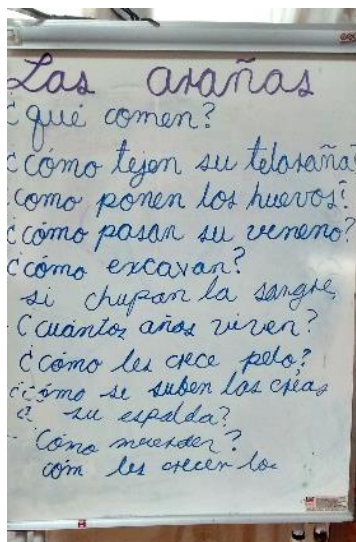 Las arañas
¿qué comen?
¿cómo tejen su telaraña?
¿como ponen los huevos?
¿cómo pasan su veneno?
¿cómo excavan?
si chupan la sangre
¿cuántos años viven?
¿cómo les crece pelo?
¿cómo se suben las crías
a su espalda?
Cómo muerden?
cóm les crecen lo